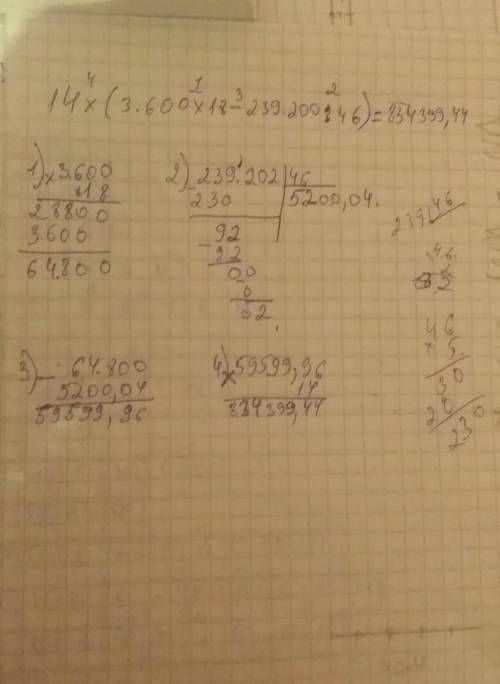 4 1 3 2
14 × (3.600 × 18 − 239.200 : 46) = 834399,44
1) × 3.600
18
28800
3600
64.800
2) 239.202 | 46
230 5200,04.
92
− 92
00
0
02.
239 46
46
2
92
46
× 5
30
20
230
3) − 64.800
5200,04
59599,96
4) × 59599,96
14
834399,44